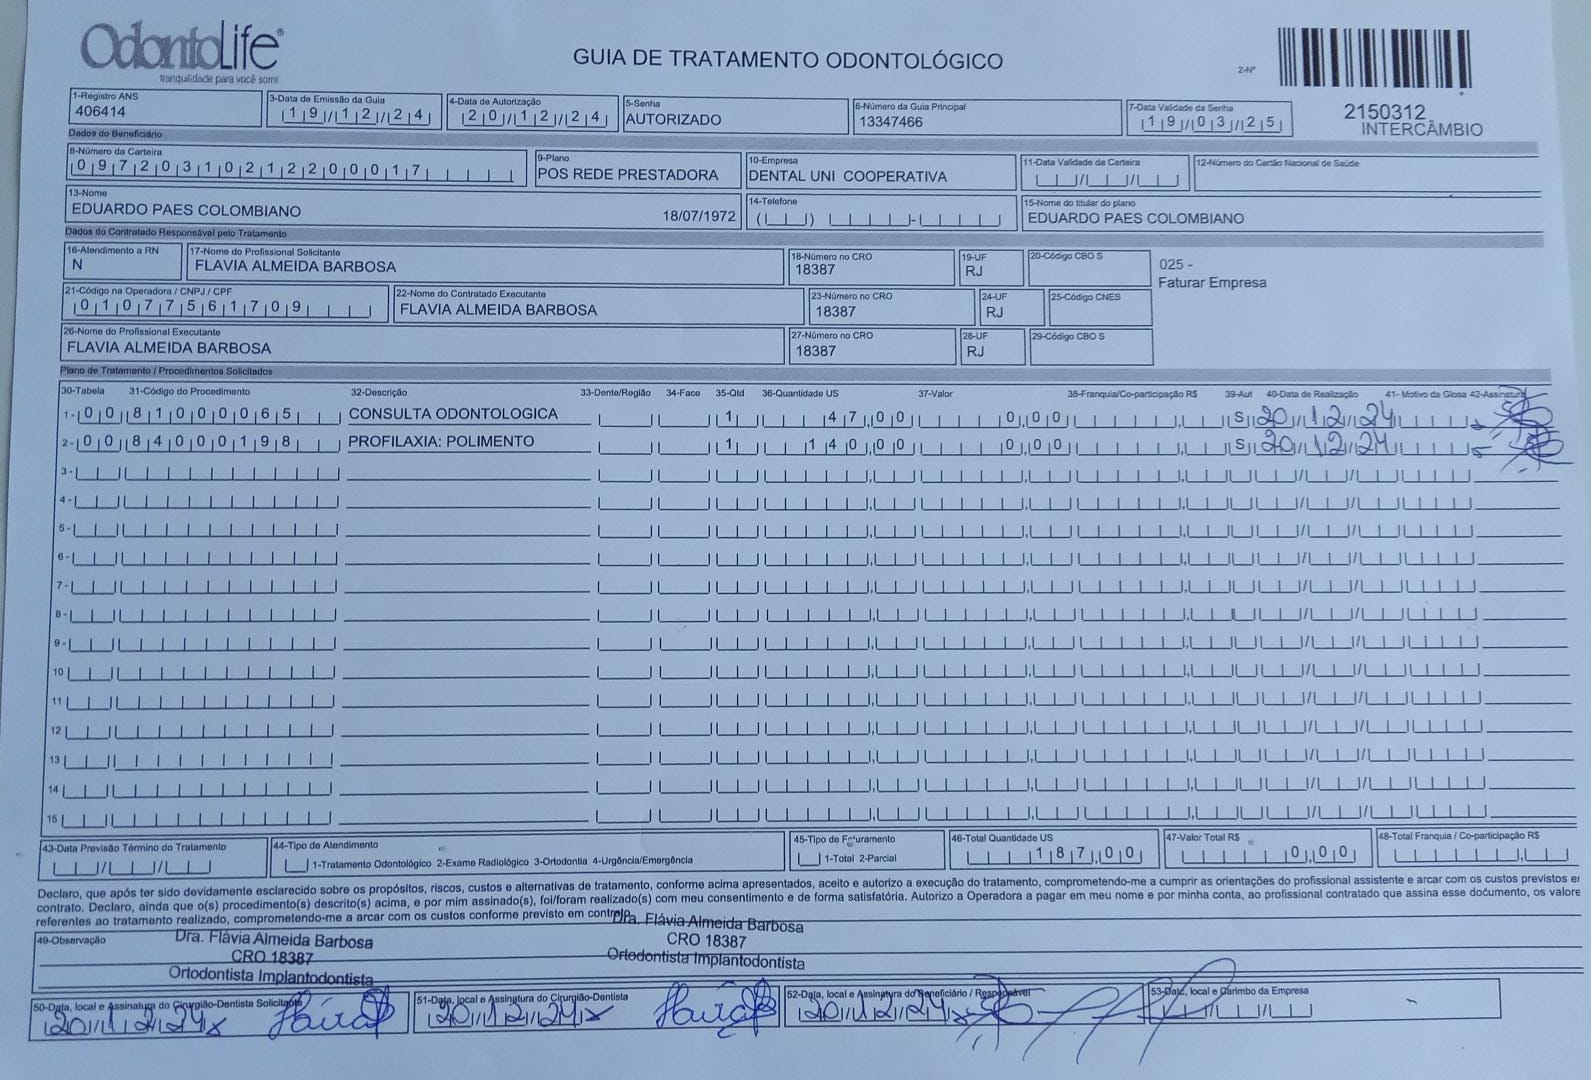 OdontoLife®
tranquilidade para você sorrir
GUIA DE TRATAMENTO ODONTOLÓGICO
2-Nº
2150312
INTERCÂMBIO
1-Registro ANS
406414
3-Data de Emissão da Guia
19/12/24
4-Data de Autorização
20/12/24
5-Senha
AUTORIZADO
6-Número da Guia Principal
13347466
7-Data Validade da Senha
19/03/25
Dados do Beneficiário
8-Número da Carteira
09720310212200017
9-Plano
POS REDE PRESTADORA
10-Empresa
DENTAL UNI COOPERATIVA
11-Data Validade da Carteira
12-Número do Cartão Nacional de Saúde
13-Nome
EDUARDO PAES COLOMBIANO 18/07/1972
14-Telefone
15-Nome do titular do plano
EDUARDO PAES COLOMBIANO
Dados do Contratado Responsável pelo Tratamento
16-Atendimento a RN
N
17-Nome do Profissional Solicitante
FLAVIA ALMEIDA BARBOSA
18-Número no CRO
18387
19-UF
RJ
20-Código CBO S
025 -
Faturar Empresa
21-Código na Operadora / CNPJ / CPF
01077561709
22-Nome do Contratado Executante
FLAVIA ALMEIDA BARBOSA
23-Número no CRO
18387
24-UF
RJ
25-Código CNES
26-Nome do Profissional Executante
FLAVIA ALMEIDA BARBOSA
27-Número no CRO
18387
28-UF
RJ
29-Código CBO S
Plano de Tratamento / Procedimentos Solicitados
30-Tabela 31-Código do Procedimento 32-Descrição 33-Dente/Região 34-Face 35-Qtd 36-Quantidade US 37-Valor 38-Franquia/Co-participação R$ 39-Aut 40-Data de Realização 41- Motivo da Glosa 42-Assinatura
1- 00 81000065 CONSULTA ODONTOLOGICA 1 47,00 0,00 S 20/12/24
2- 00 84000198 PROFILAXIA: POLIMENTO 1 140,00 0,00 S 20/12/24
3-
4-
5-
6-
7-
8-
9-
10
11
12
13
14
15
43-Data Previsão Término do Tratamento
44-Tipo de Atendimento
1-Tratamento Odontológico 2-Exame Radiológico 3-Ortodontia 4-Urgência/Emergência
45-Tipo de Faturamento
1-Total 2-Parcial
46-Total Quantidade US
187,00
47-Valor Total R$
0,00
48-Total Franquia / Co-participação R$
Declaro, que após ter sido devidamente esclarecido sobre os propósitos, riscos, custos e alternativas de tratamento, conforme acima apresentados, aceito e autorizo a execução do tratamento, comprometendo-me a cumprir as orientações do profissional assistente e arcar com os custos previstos em
contrato. Declaro, ainda que o(s) procedimento(s) descrito(s) acima, e por mim assinado(s), foi/foram realizado(s) com meu consentimento e de forma satisfatória. Autorizo a Operadora a pagar em meu nome e por minha conta, ao profissional contratado que assina esse documento, os valore
referentes ao tratamento realizado, comprometendo-me a arcar com os custos conforme previsto em contrato.
49-Observação
Dra. Flávia Almeida Barbosa
CRO 18387
Ortodontista Implantodontista
Dra. Flávia Almeida Barbosa
CRO 18387
Ortodontista Implantodontista
50-Data, local e Assinatura do Cirurgião-Dentista Solicitante
20/12/24 Flávia
51-Data, local e Assinatura do Cirurgião-Dentista
20/12/24 Flávia
52-Data, local e Assinatura do Beneficiário / Responsável
20/12/24
53-Data, local e Carimbo da Empresa